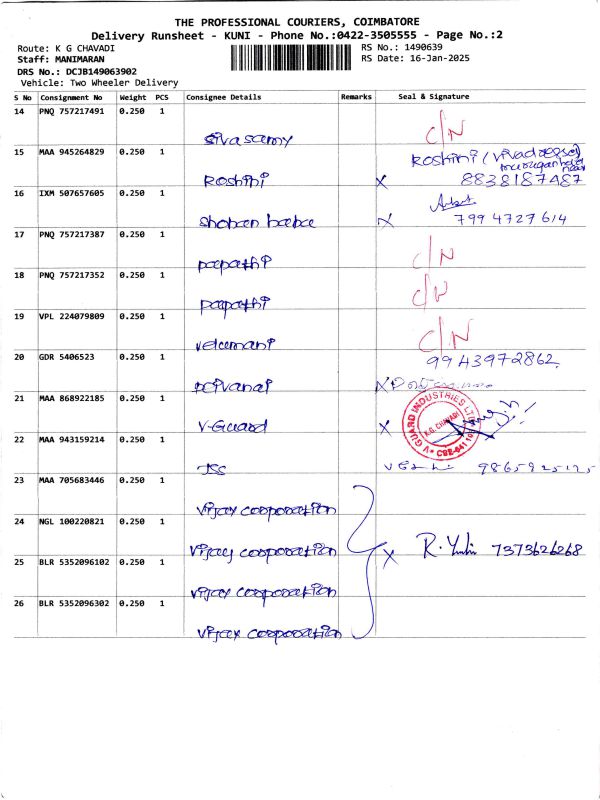 THE PROFESSIONAL COURIERS, COIMBATORE
Delivery Runsheet - KUNI - Phone No.:0422-3505555 - Page No.:2
Route: K G CHAVADI RS No.: 1490639
Staff: MANIMARAN RS Date: 16-Jan-2025
DRS No.: DCJB149063902
Vehicle: Two Wheeler Delivery
S No Consignment No Weight PCS Consignee Details Remarks Seal & Signature
14 PNQ 757217491 0.250 1
sivasamy C/N
15 MAA 945264829 0.250 1
Roshini (
Roshini X 8838187487
16 IXM 507657605 0.250 1
shoban baba X 7994727614
17 PNQ 757217387 0.250 1
papathi C/N
18 PNQ 757217352 0.250 1
papathi C/N
19 VPL 224079809 0.250 1
velumani C/N
20 GDR 5406523 0.250 1 9943972862
X
21 MAA 868922185 0.250 1
V-Guard X V GUARD INDUSTRIES LTD K.G. CHAVADI CBE-641 105
22 MAA 943159214 0.250 1
JSS
23 MAA 705683446 0.250 1
Vijay cooporation
24 NGL 100220821 0.250 1
Vijay cooporation X R. 7373626268
25 BLR 5352096102 0.250 1
Vijay cooporation
26 BLR 5352096302 0.250 1
Vijay cooporation